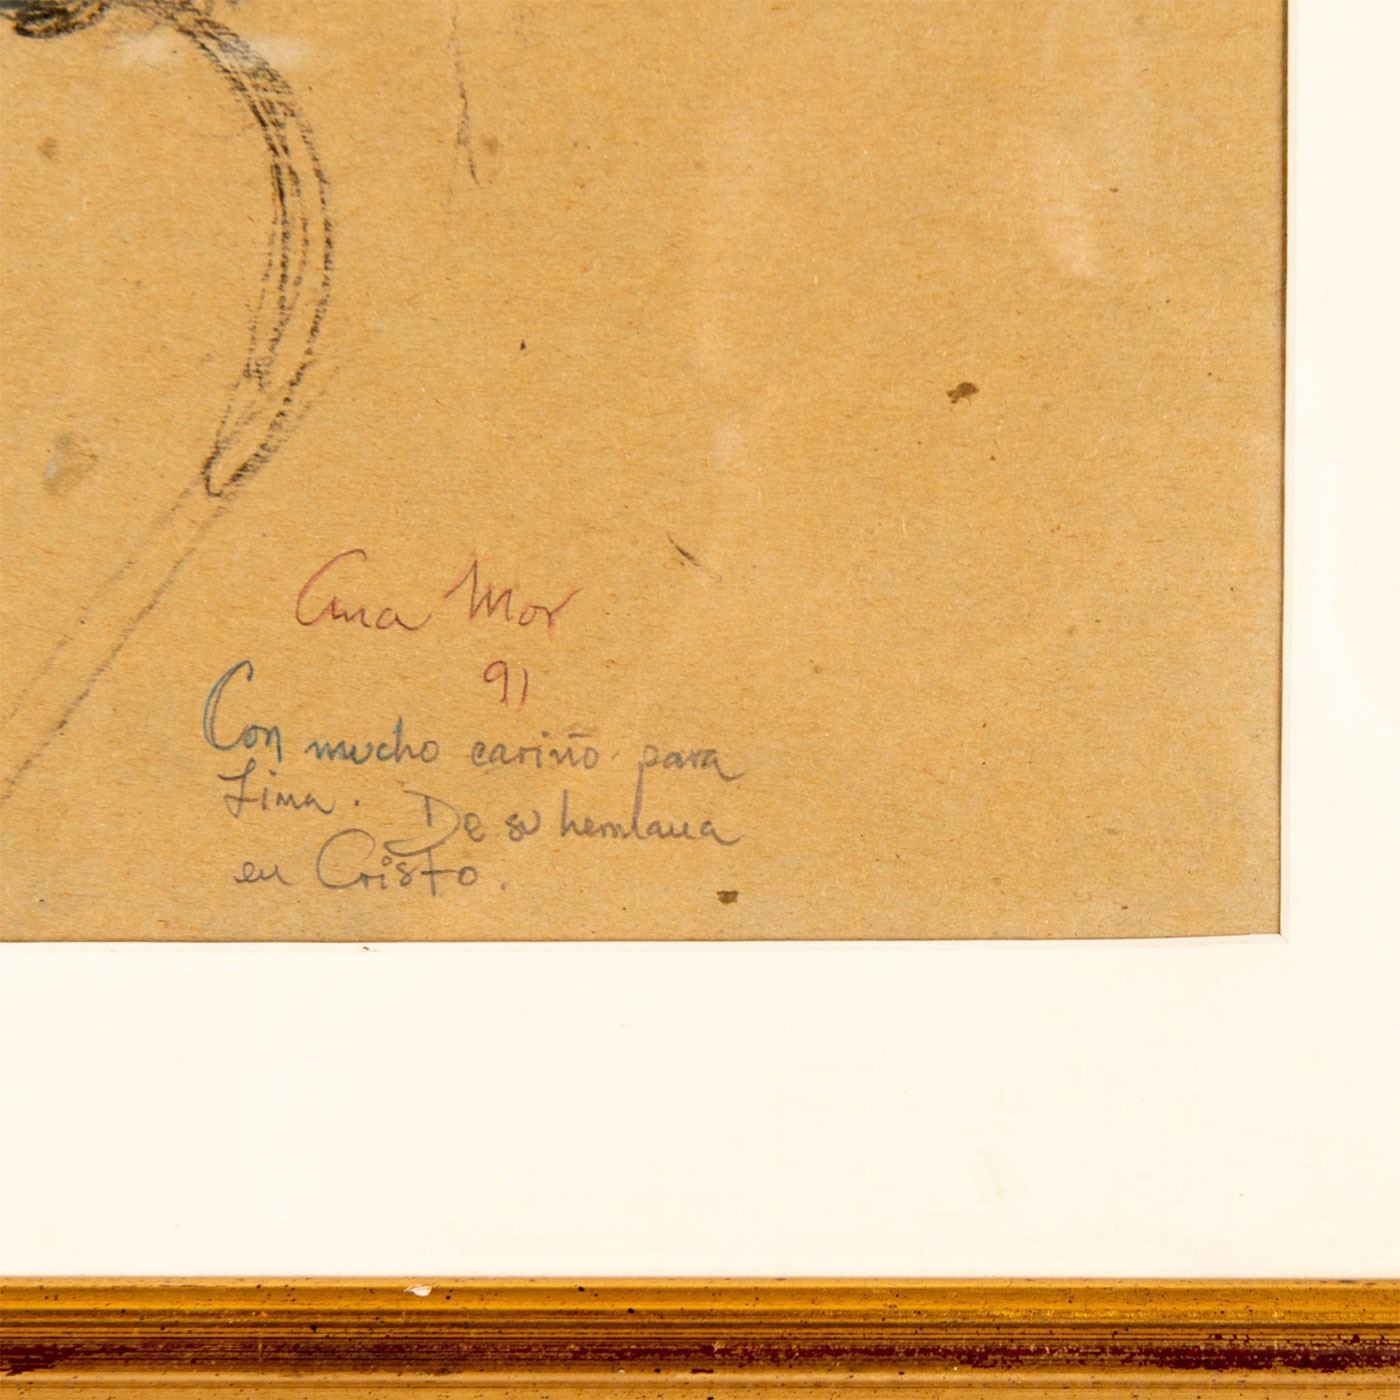 Ana Mor
91
Con mucho cariño para
Lima. De su hermana
en Cristo.